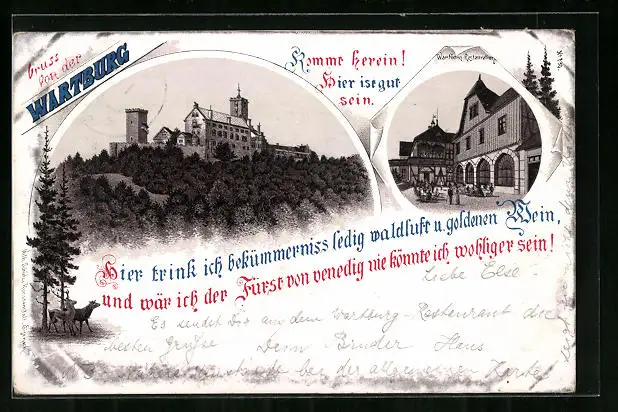 Gruss
von der
WARTBURG
Kommt herein!
Hier ist gut
sein.
Wartburg Restauration
Hier trink ich bekümmerniss ledig waldluft u. goldenen Wein,
und wär ich der Fürst von venedig nie könnte ich wohliger sein!
Liebe Else
Es sendet Dir aus dem Wartburg-Restaurant die
besten Grüße Dein Bruder Hans
bei der allgemeinen